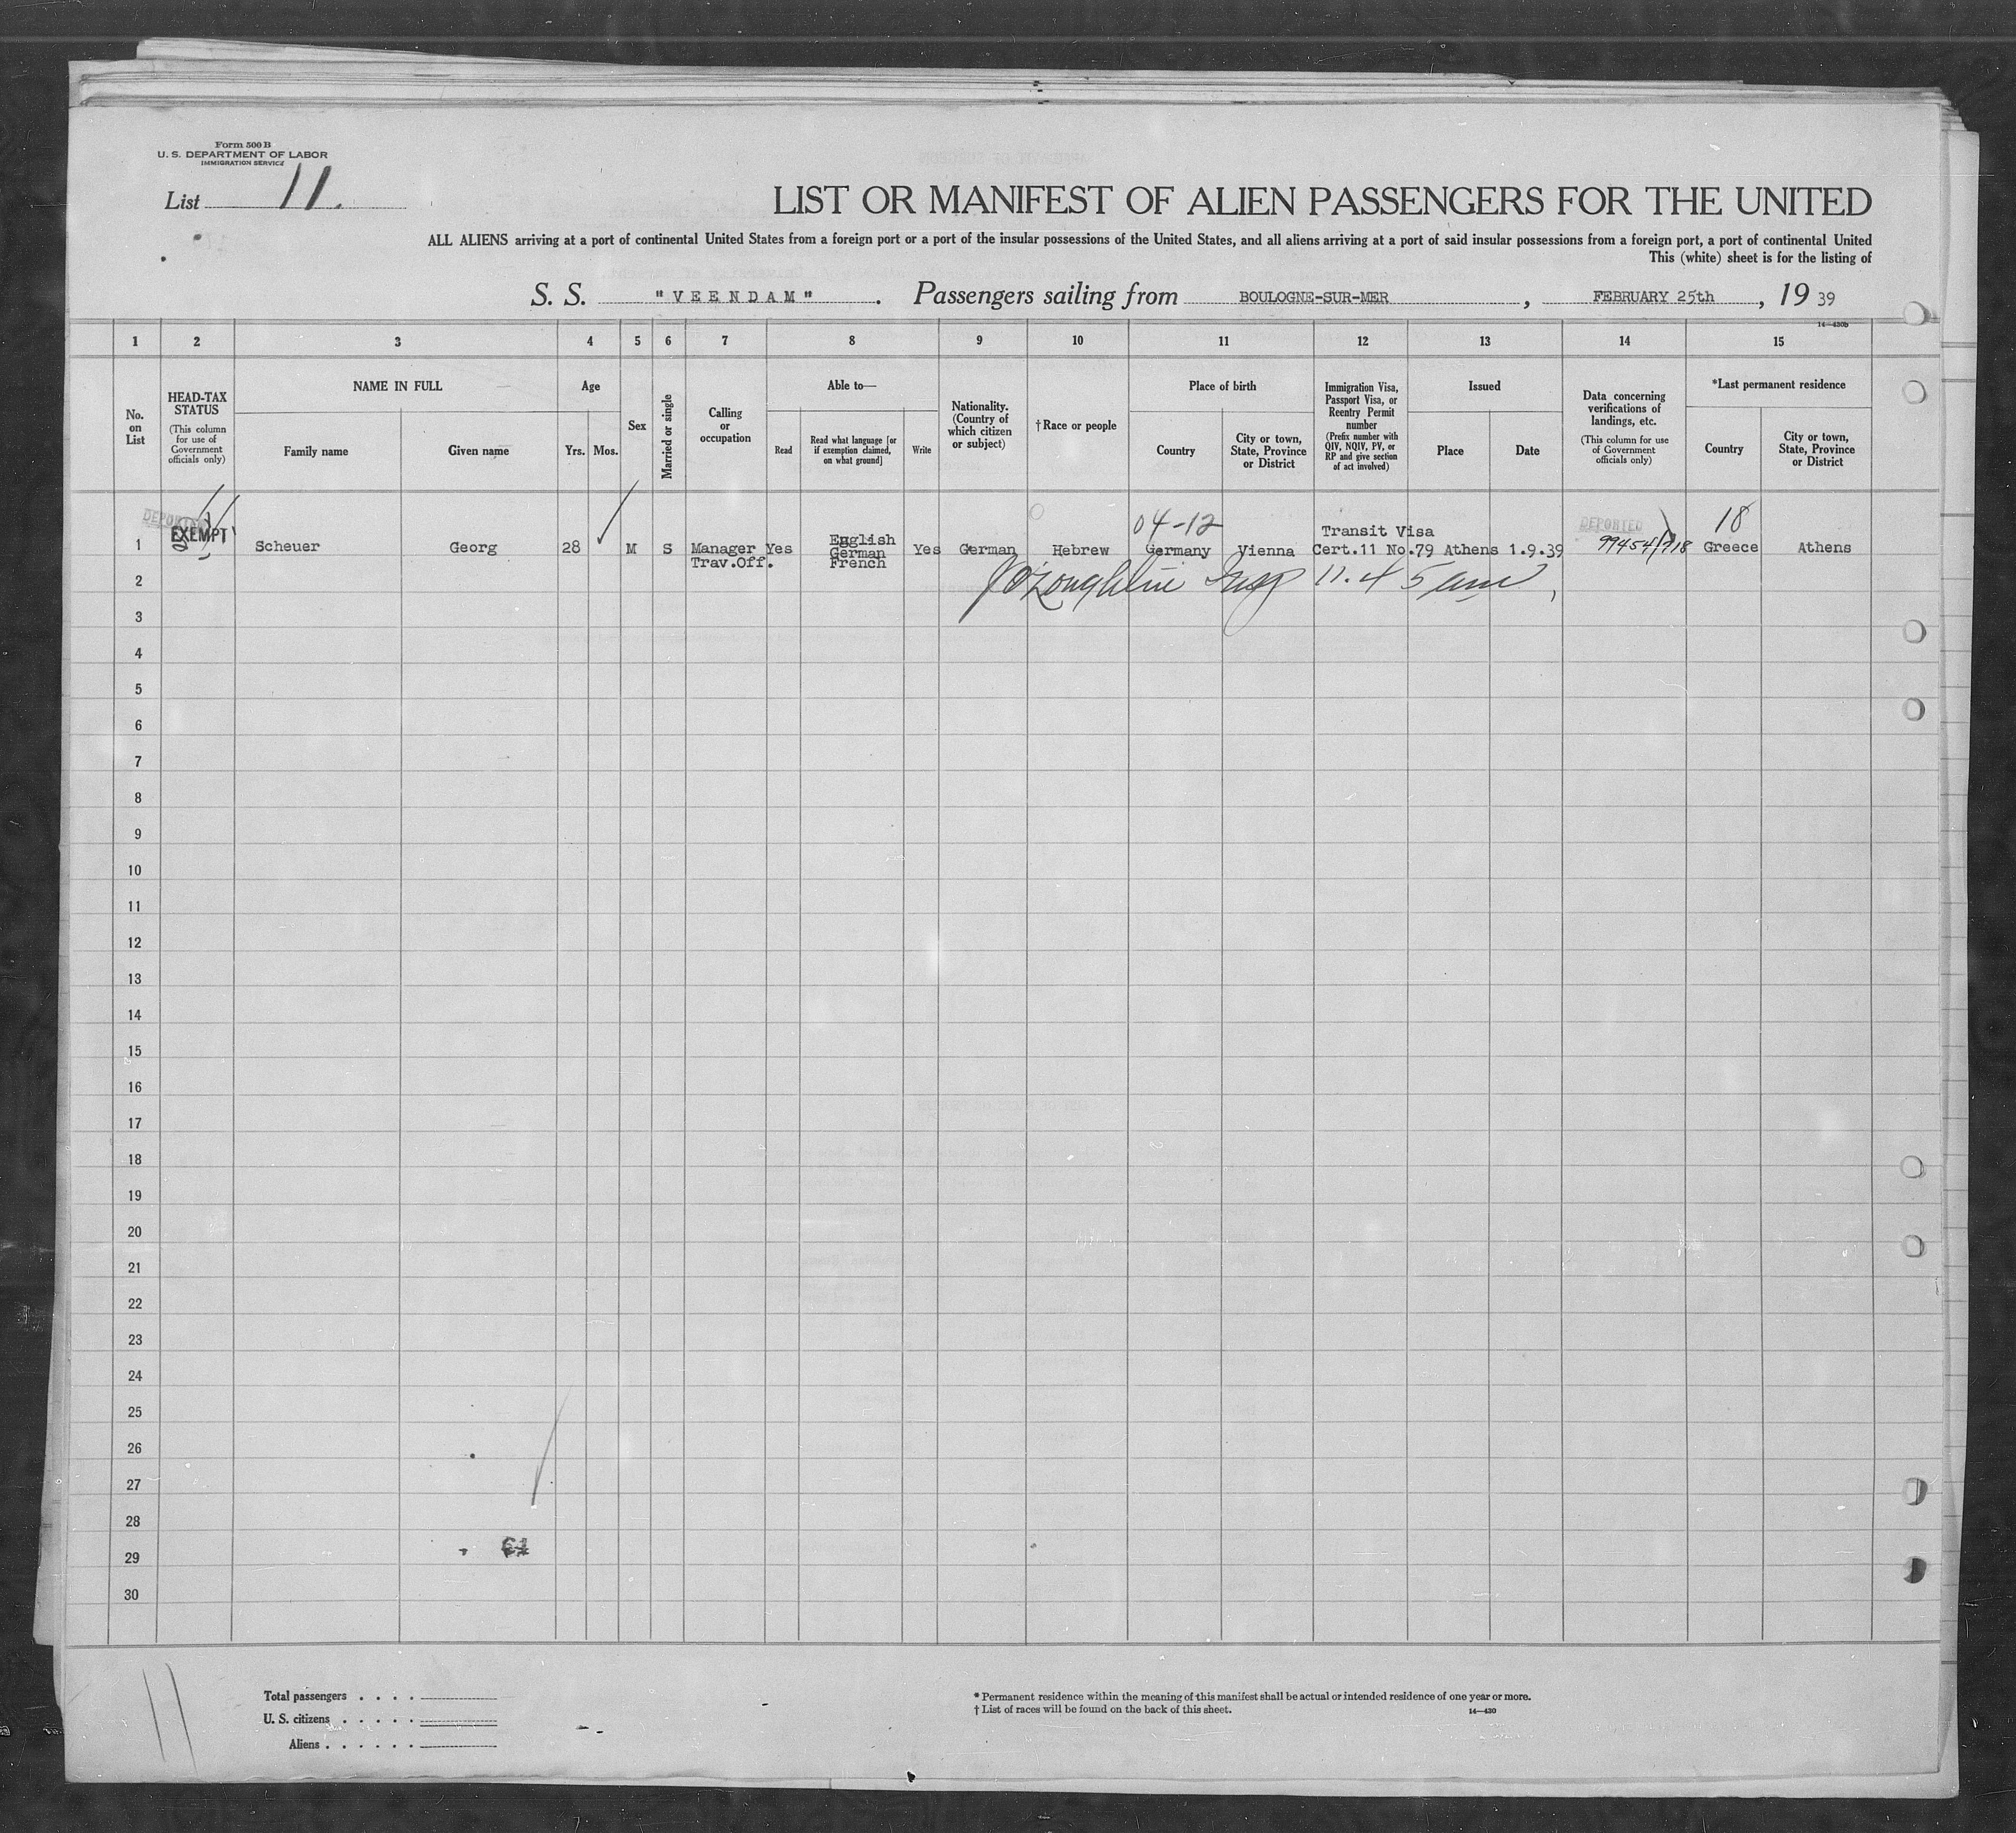 Form 500 B
U. S. DEPARTMENT OF LABOR
IMMIGRATION SERVICE
List 11.
LIST OR MANIFEST OF ALIEN PASSENGERS FOR THE UNITED
ALL ALIENS arriving at a port of continental United States from a foreign port or a port of the insular possessions of the United States, and all aliens arriving at a port of said insular possessions from a foreign port, a port of continental United
This (white) sheet is for the listing of
S. S. "VEENDAM" . Passengers sailing from BOULOGNE-SUR-MER , FEBRUARY 25th , 19 39
14—430b
1 2 3 4 5 6 7 8 9 10 11 12 13 14 15
No. on List
HEAD-TAX STATUS
(This column for use of Government officials only)
NAME IN FULL
Family name
Given name
Age
Yrs. Mos.
Sex
Married or single
Calling or occupation
Able to—
Read
Read what language [or if exemption claimed, on what ground]
Write
Nationality. (Country of which citizen or subject)
†Race or people
Place of birth
Country
City or town, State, Province or District
Immigration Visa, Passport Visa, or Reentry Permit number
(Prefix number with QIV, NQIV, PV, or RP and give section of act involved)
Issued
Place
Date
Data concerning verifications of landings, etc.
(This column for use of Government officials only)
*Last permanent residence
Country
City or town, State, Province or District
DEPORTED
EXEMPT
04-12
DEPORTED
18
Transit Visa
1 Scheuer Georg 28 M S Manager Yes English Yes German Hebrew Germany Vienna Cert.11 No.79 Athens 1.9.39 99454/718 Greece Athens
German
Trav.Off. French
2
11.45 am
3
4
5
6
7
8
9
10
11
12
13
14
15
16
17
18
19
20
21
22
23
24
25
26
27
28
29
30
11
Total passengers . . . .
U. S. citizens . . . . .
Aliens . . . . . .
* Permanent residence within the meaning of this manifest shall be actual or intended residence of one year or more.
† List of races will be found on the back of this sheet.
14—430